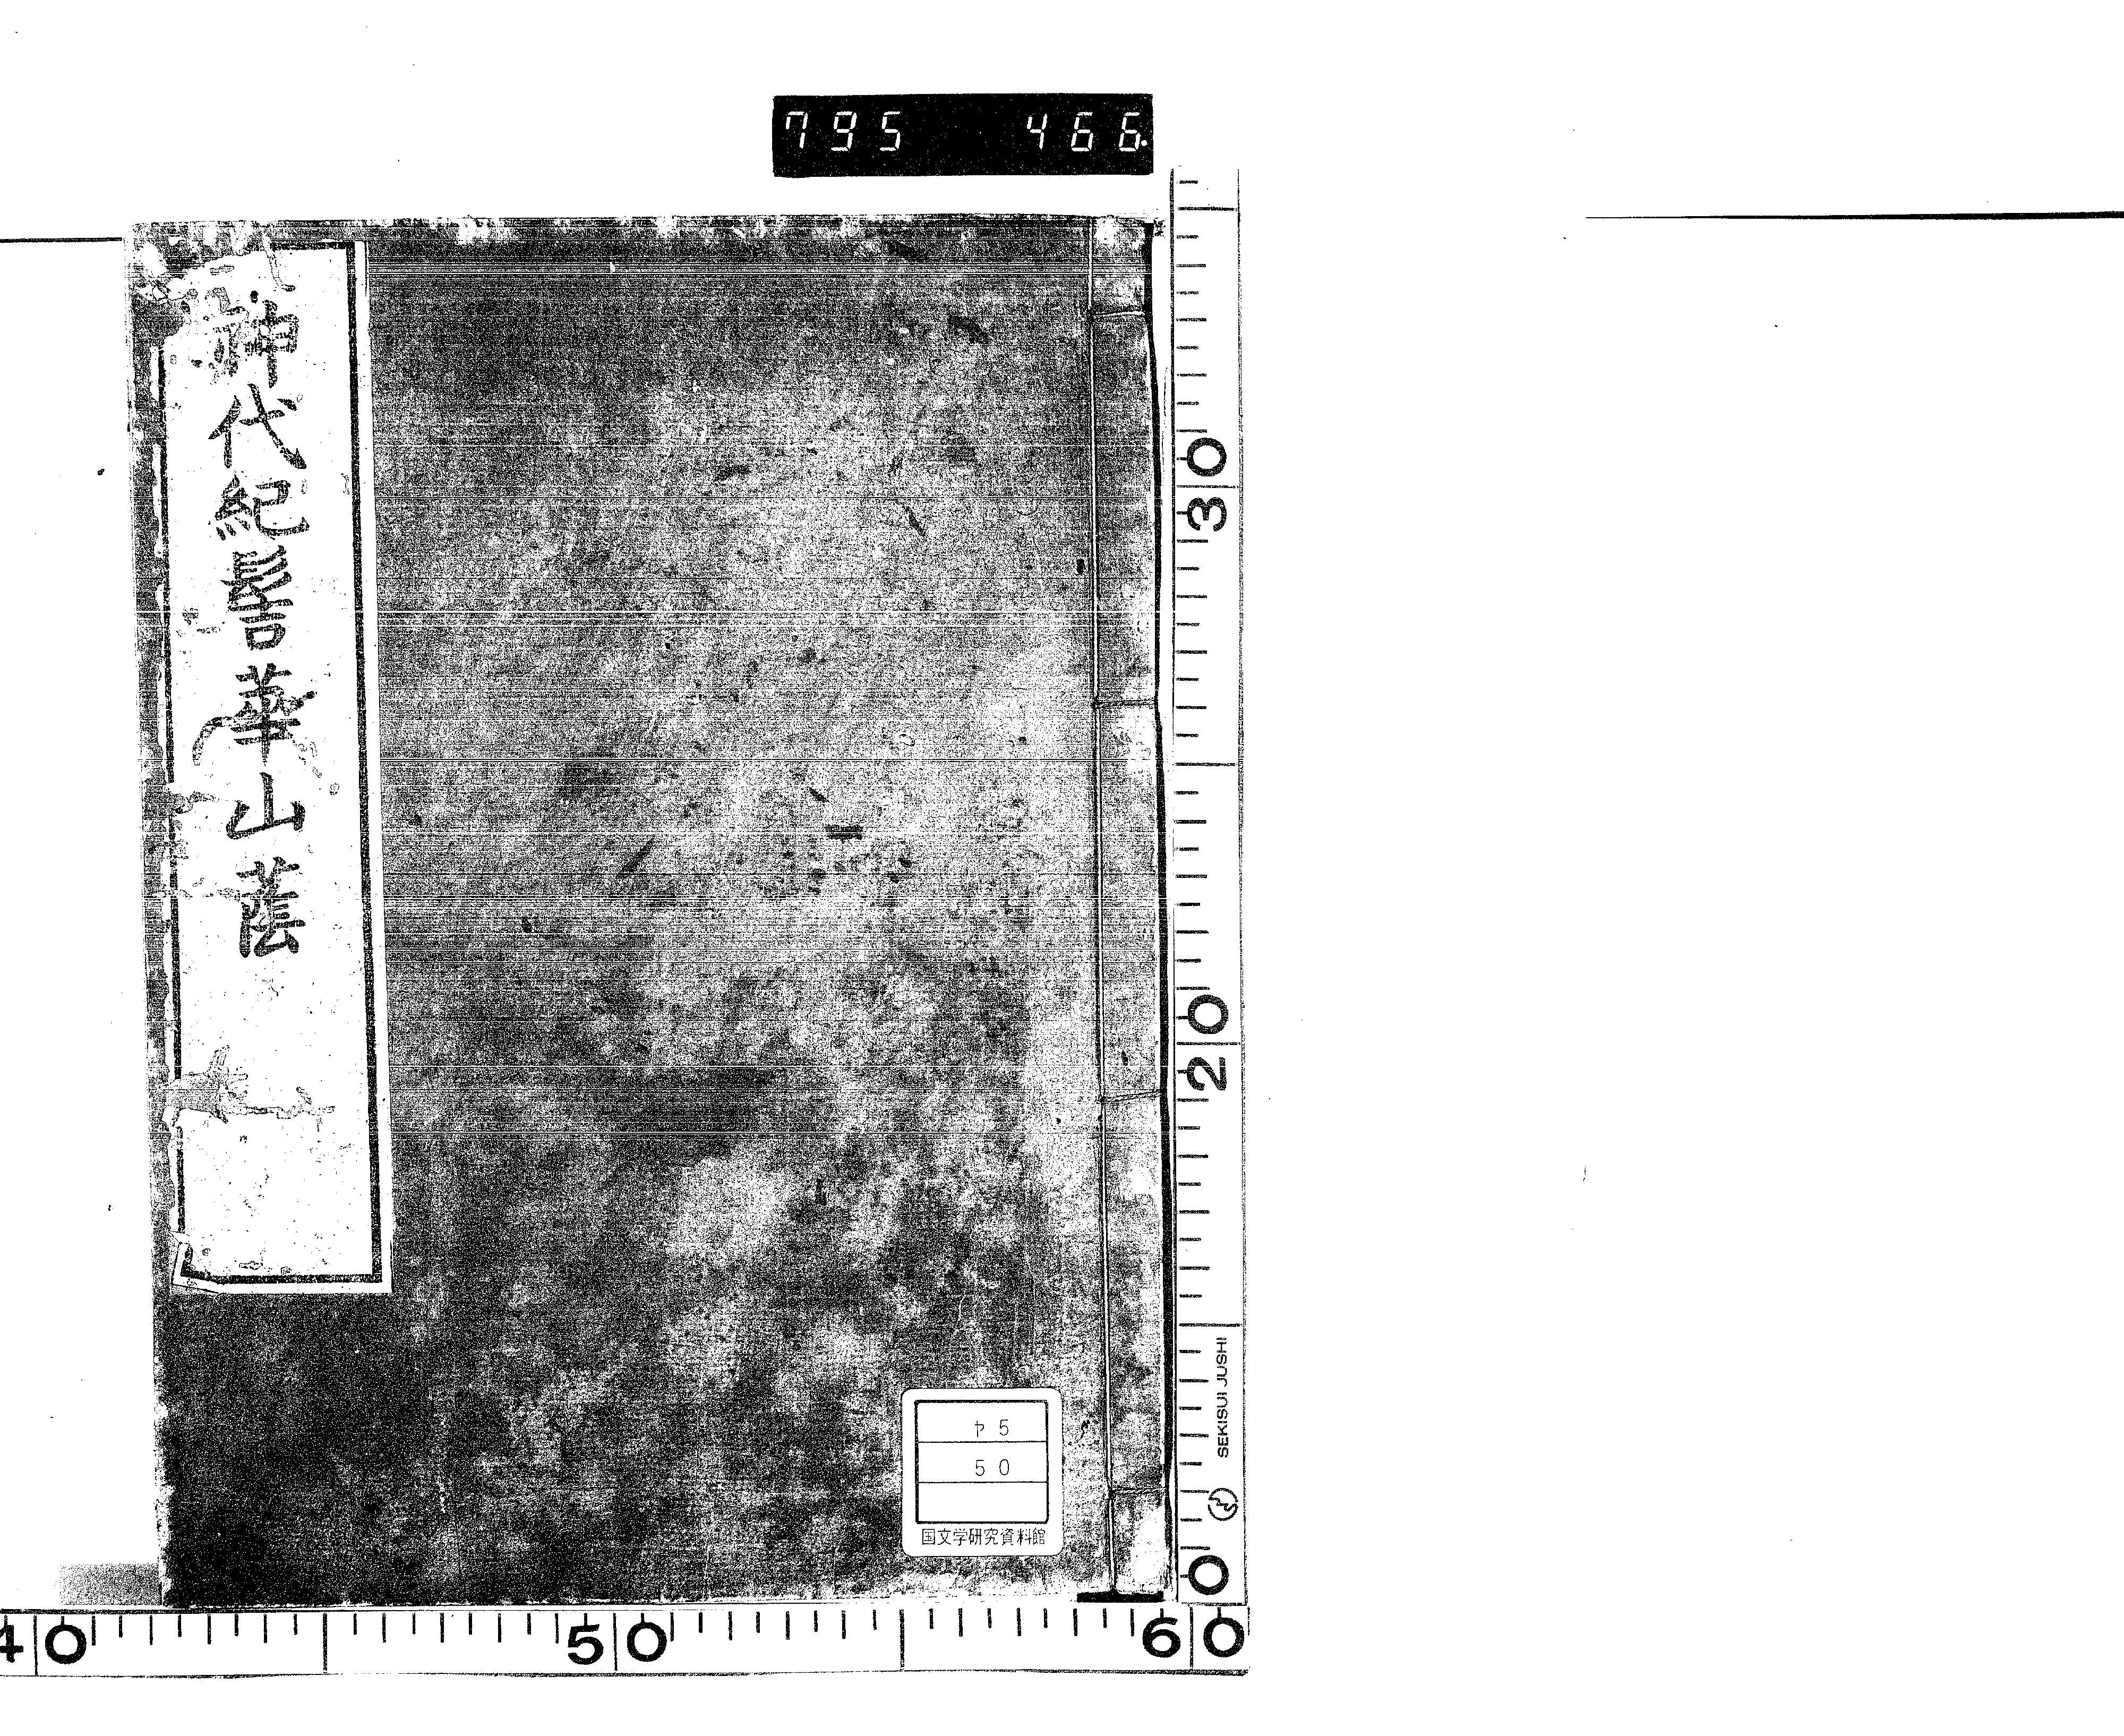 795 466
神代紀髻華山蔭
ヤ5
50
国文学研究資料館
30
20
SEKISUI JUSHI
0
40 50 60